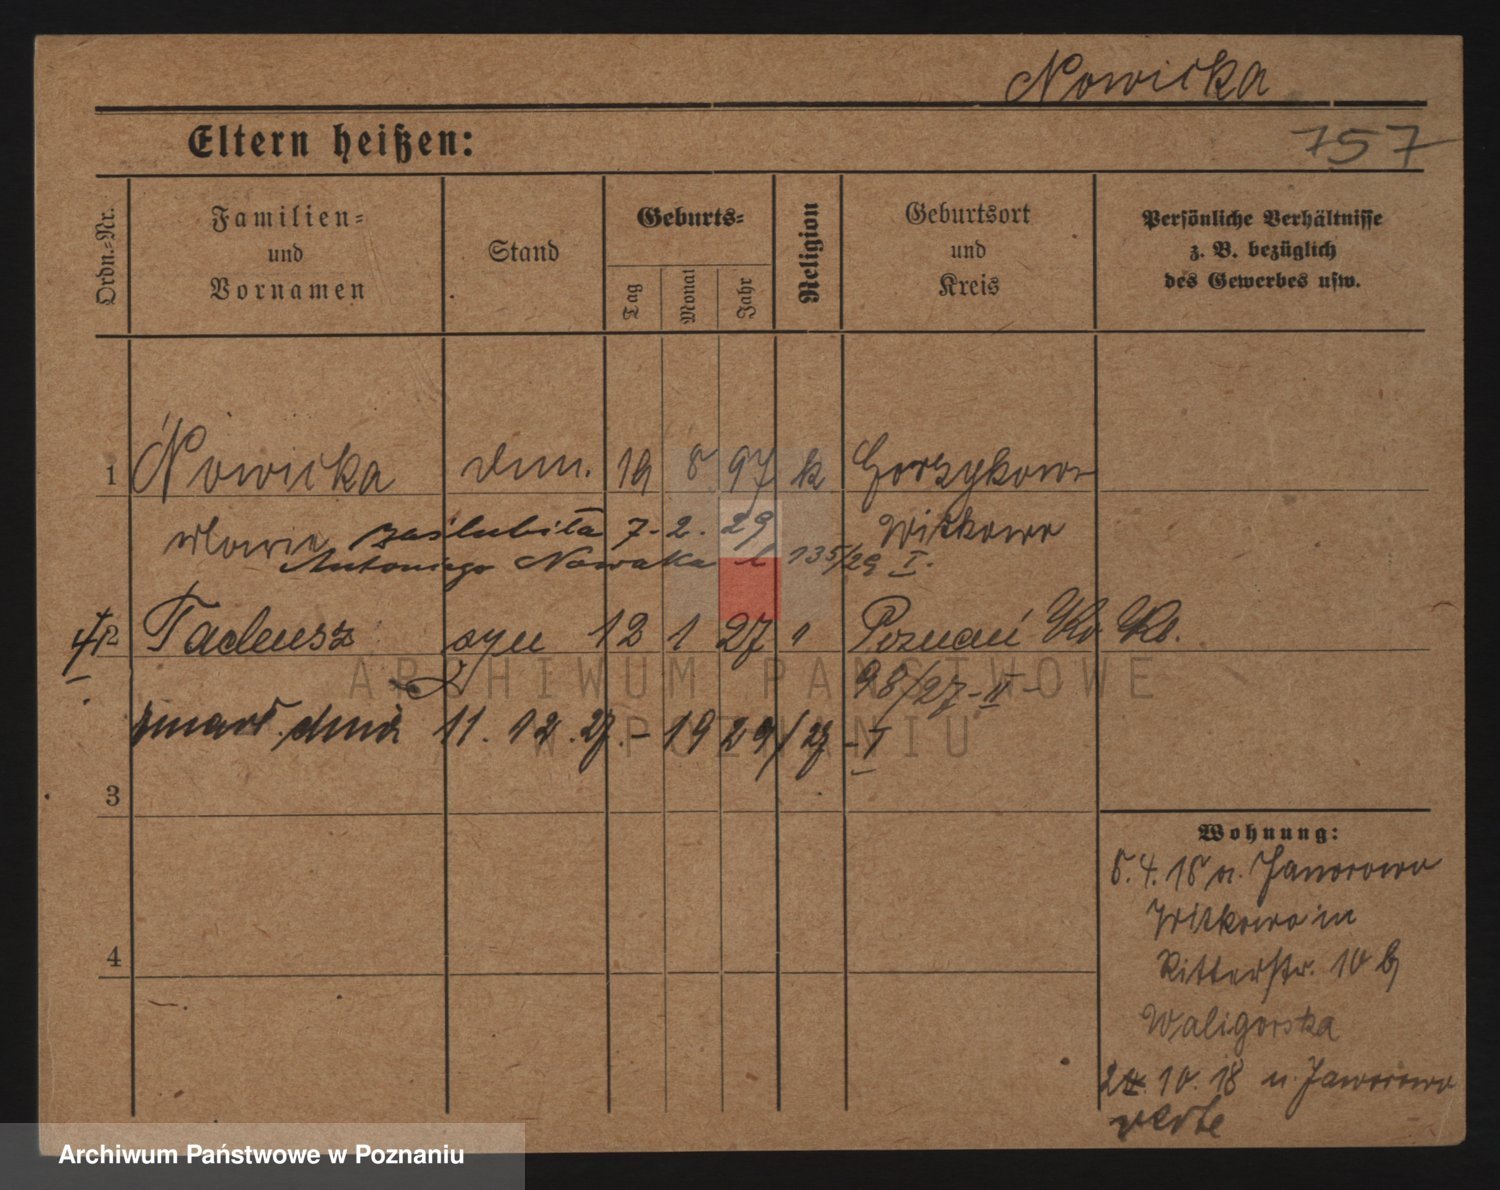 Nowicka
Eltern heißen:
757
Ordn.=Nr.
Familien=
und
Vornamen
Stand
Geburts=
Tag
Monat
Jahr
Religion
Geburtsort
und
Kreis
Persönliche Verhältnisse
z. B. bezüglich
des Gewerbes usw.
1 Nowicka 19 8 97 k Gorzykowo
zaślubiła 7. 2. 29 Witkowo
Antoniego Nowaka 135/29 I.
2 Tadeusz syn 12 1 27 " Poznań
98/27-II-
zmarł dnia 11. 12. 27. - 1929/27 - I
3
4
Wohnung:
5. 4. 18 n. Jaworowo
Witkowo in
Ritterstr. 10 b
Waligorska
10. 18 n. Jaworowo
verte
ARCHIWUM PAŃSTWOWE
W POZNANIU
Archiwum Państwowe w Poznaniu